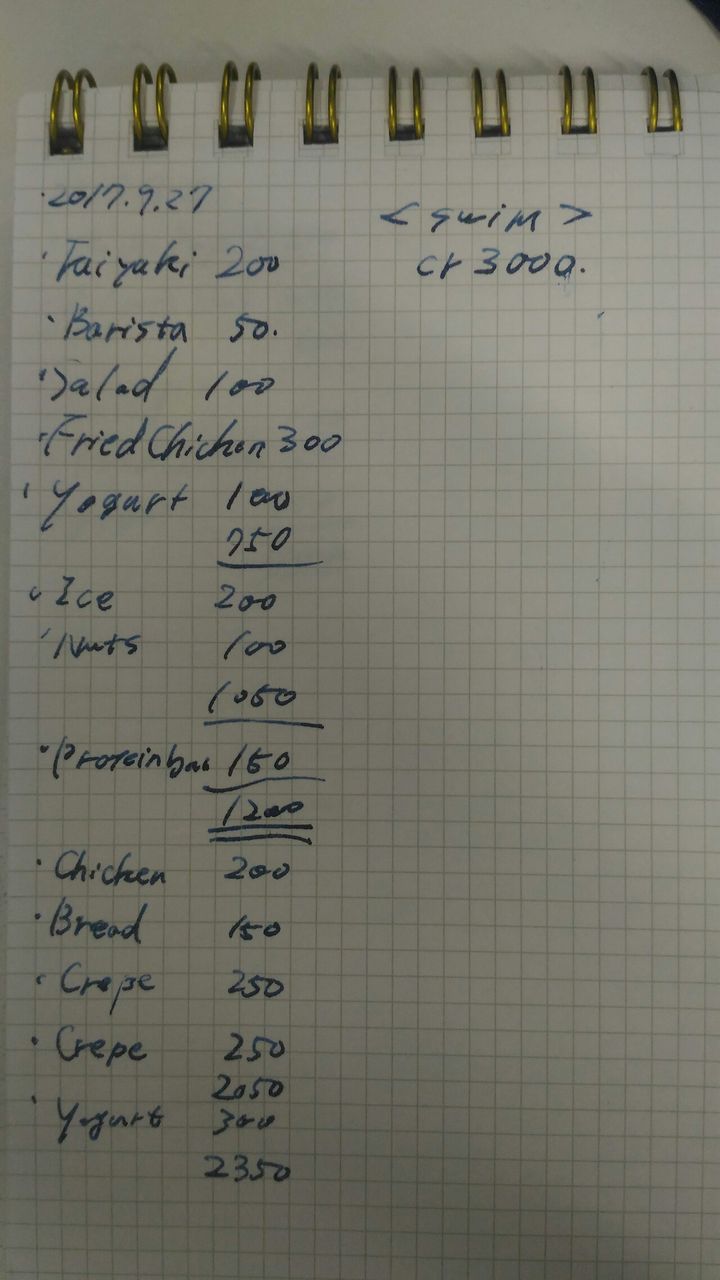 ·2017.9.27
<swim>
·Taiyaki 200
cr 3000.
·Barista 50.
·Salad 100
·Fried Chicken 300
·Yogurt 100
750
·Ice 200
·Nuts 100
1050
·Proteinbar 150
1200
·Chicken 200
·Bread 150
·Crepe 250
·Crepe 250
2050
·Yogurt 300
2350